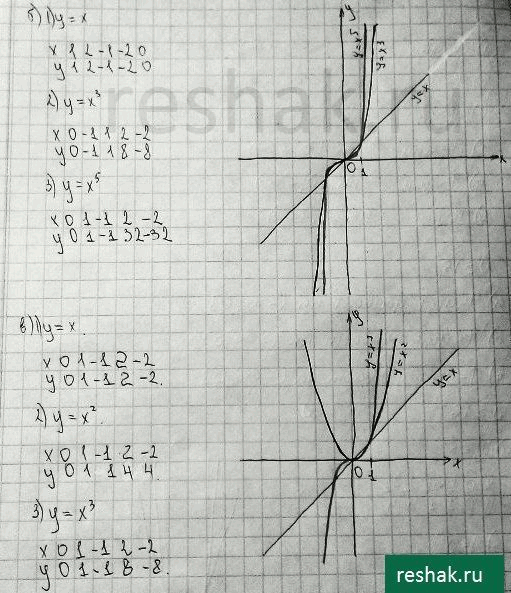 б) 1) y = x
x 1 2 -1 -2 0
y 1 2 -1 -2 0
2) y = x³
x 0 -1 1 2 -2
y 0 -1 1 8 -8
3) y = x⁵
x 0 1 -1 2 -2
y 0 1 -1 32 -32
y
y=x⁵
y=x³
y=x
x
0 1
reshak.ru
в) 1) y = x
x 0 1 -1 2 -2
y 0 1 -1 2 -2.
2) y = x².
x 0 1 -1 2 -2
y 0 1 1 4 4.
3) y = x³
x 0 1 -1 2 -2
y 0 1 -1 8 -8.
y
y=x³
y=x²
y=x
x
0 1
reshak.ru